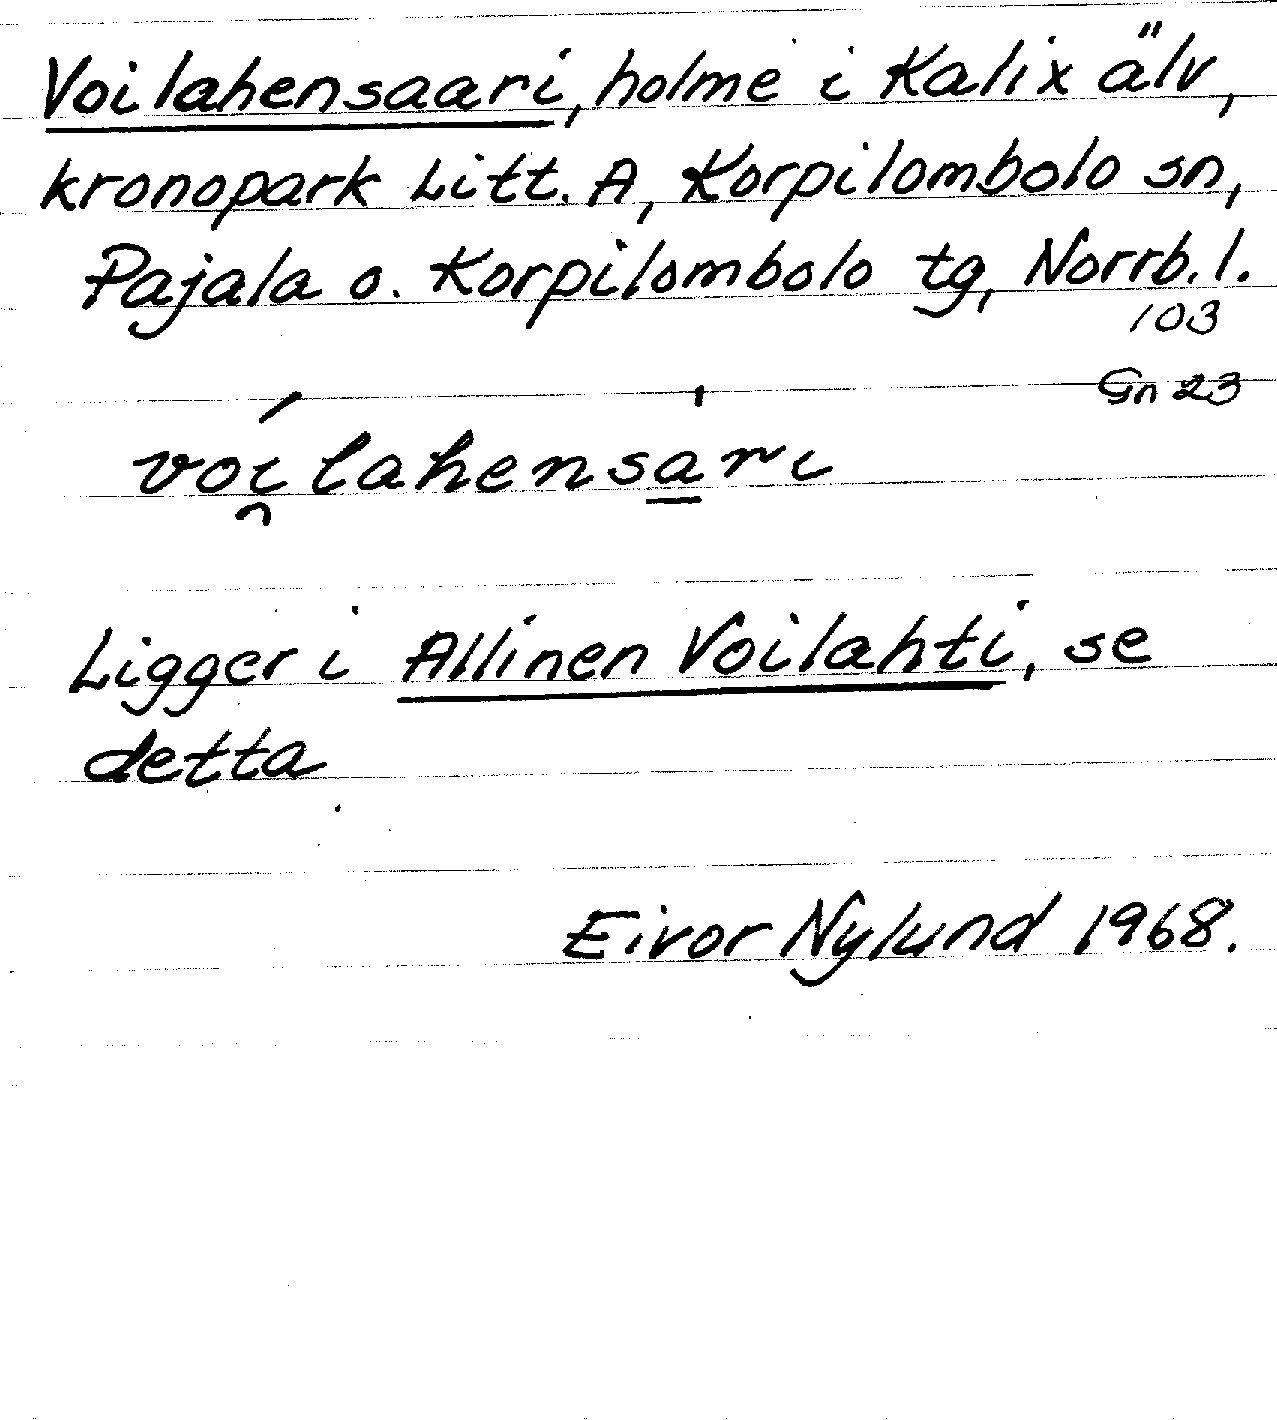 Voilahensaari, holme i Kalix älv,
kronopark Litt. A, Korpilombolo sn,
Pajala o. Korpilombolo tg, Norrb. l.
103
Gn 23
vói̯lahensa̱ˈri
Ligger i Allinen Voilahti, se
detta
Eivor Nylund 1968.